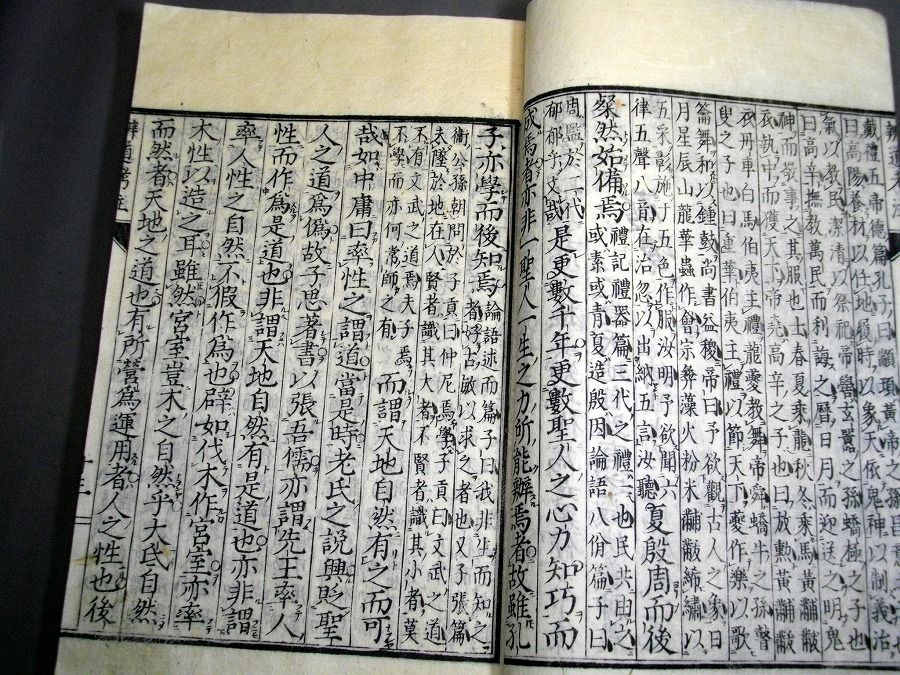 戴禮五帝德篇孔子曰顓頊黃帝之孫昌意之子也
曰高陽養材以任地履時以象天依鬼神以制義治
氣以教民潔清以祭祀帝嚳玄囂之孫蟜極之子也
曰高辛撫教萬民而利誨之曆日月而迎送之明鬼
神而敬事之其服也士春夏乘龍秋冬乘馬黃黼黻
衣執中而獲天下帝堯高辛之子也曰放勳黃黼黻
衣丹車白馬伯夷主禮龍夔教舞帝舜蟜牛之孫瞽
叟之子也曰重華伯夷主禮以節天下夔作樂以歌
籥舞和以鍾鼓尚書益稷帝曰予欲觀古人之象日
月星辰山龍華蟲作會宗彝藻火粉米黼黻絺繡以
五采彰施于五色作服汝明予欲聞六
律五聲八音在治忽以出納五言汝聽
夏殷周而後
粲然始備焉
禮記禮器篇三代之禮一也民共由之
或素或青夏造殷因論語八佾篇子曰
周監於二代
郁郁乎文哉
是更數千年更數聖人之心力知巧而
成焉者亦非一聖人一生之力所能辨焉者故雖孔
子亦學而後知焉
論語述而篇子曰我非生而知之
者好古敏以求之者也又子張篇
衞公孫朝問於子貢曰仲尼焉學子貢曰文武之道
未墜於地在人賢者識其大者不賢者識其小者莫
不有文武之道焉夫子焉
不學而亦何常師之有
而謂天地自然有之而可
哉如中庸曰率性之謂道當是時老氏之說興貶聖
人之道爲僞故子思著書以張吾儒亦謂先王率人
性而作爲是道也非謂天地自然有是道也亦非謂
率人性之自然不假作爲也辟如伐木作宮室亦率
木性以造之耳雖然宮室豈木之自然乎大氐自然
而然者天地之道也有所營爲運用者人之性也後
辨道考註